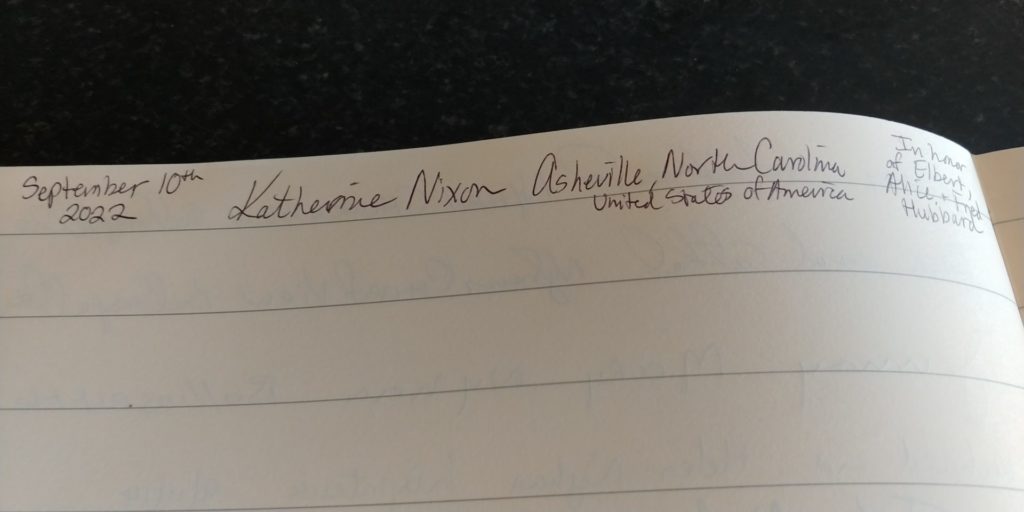 September 10th
2022
Katherine Nixon
Asheville, North Carolina
United States of America
In honor
of Elbert,
Alice + Fred
Hubbard